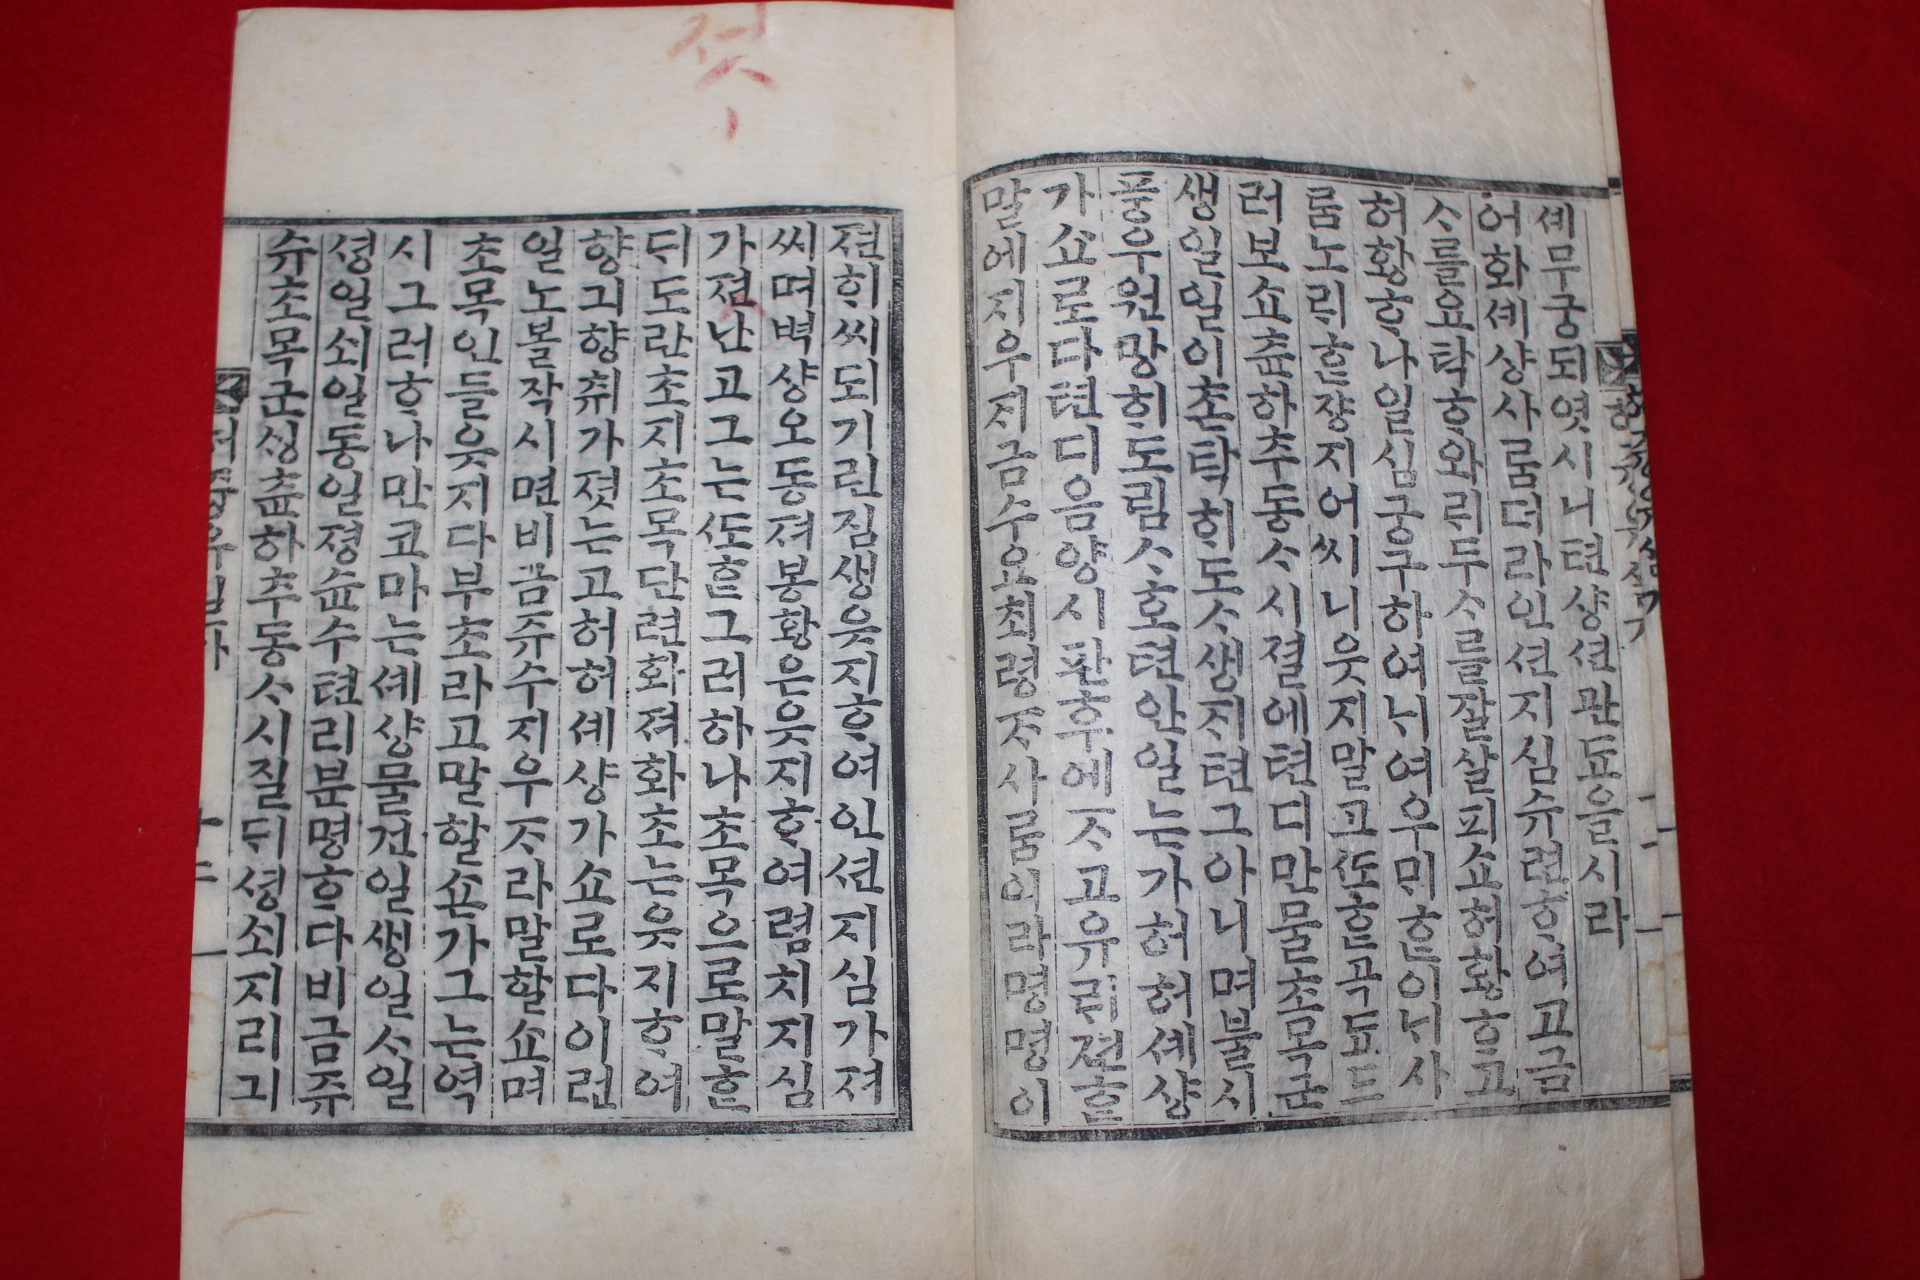 셰무궁되엿시니텬샹션관되올시라
어화셰샹사ᄅᆞᆷ더라인션지심슈련ᄒᆞ여고금
ᄉᆞ를요탁ᄒᆞ와린두ᄉᆞ를잘살피쇼허황ᄒᆞ고
허황ᄒᆞ나일심궁구하여ᄂᆡ여우ᄆᆡᄒᆞᆫ이ᄂᆡ사
ᄅᆞᆷ노ᄅᆡᄒᆞᆫ쟝지어씨니웃지말고ᄯᅩᄒᆞᆫ곡됴드
러보쇼츈하추동ᄉᆞ시졀에텬디만물초목군
생일일이촌탁ᄒᆡ도ᄉᆞ생지텬그아니며불시
풍우원망ᄒᆡ도림ᄉᆞ호텬안일는가허허셰샹
가쇼로다텬디음양시판후에ᄌᆞ고유ᄅᆡ젼ᄒᆞᆫ
말에지우지금수요최령ᄌᆞ사ᄅᆞᆷ이라명명이
젼ᄒᆡ씨되기린짐생웃지ᄒᆞ여인션지심가져
씨며벽샹오동져봉황은웃지ᄒᆞ여렴치지심
가젼난고그는ᄯᅩᄒᆞᆫ그러하나초목으로말ᄒᆞᆫ
ᄃᆡ도란초지초목단련화져화초는웃지ᄒᆞ여
향긔향취가졋는고허허셰샹가쇼로다이런
일노볼작시면비금쥬수지우ᄌᆞ라말할쇼며
초목인들웃지다부초라고말할손가그는역
시그러ᄒᆞ나만코마는셰샹물건일생일ᄉᆞ일
셩일쇠일동일졍슌수텬리분명ᄒᆞ다비금쥬
슈초목군싱츈하추동ᄉᆞ시질ᄃᆡ셩쇠지리긔